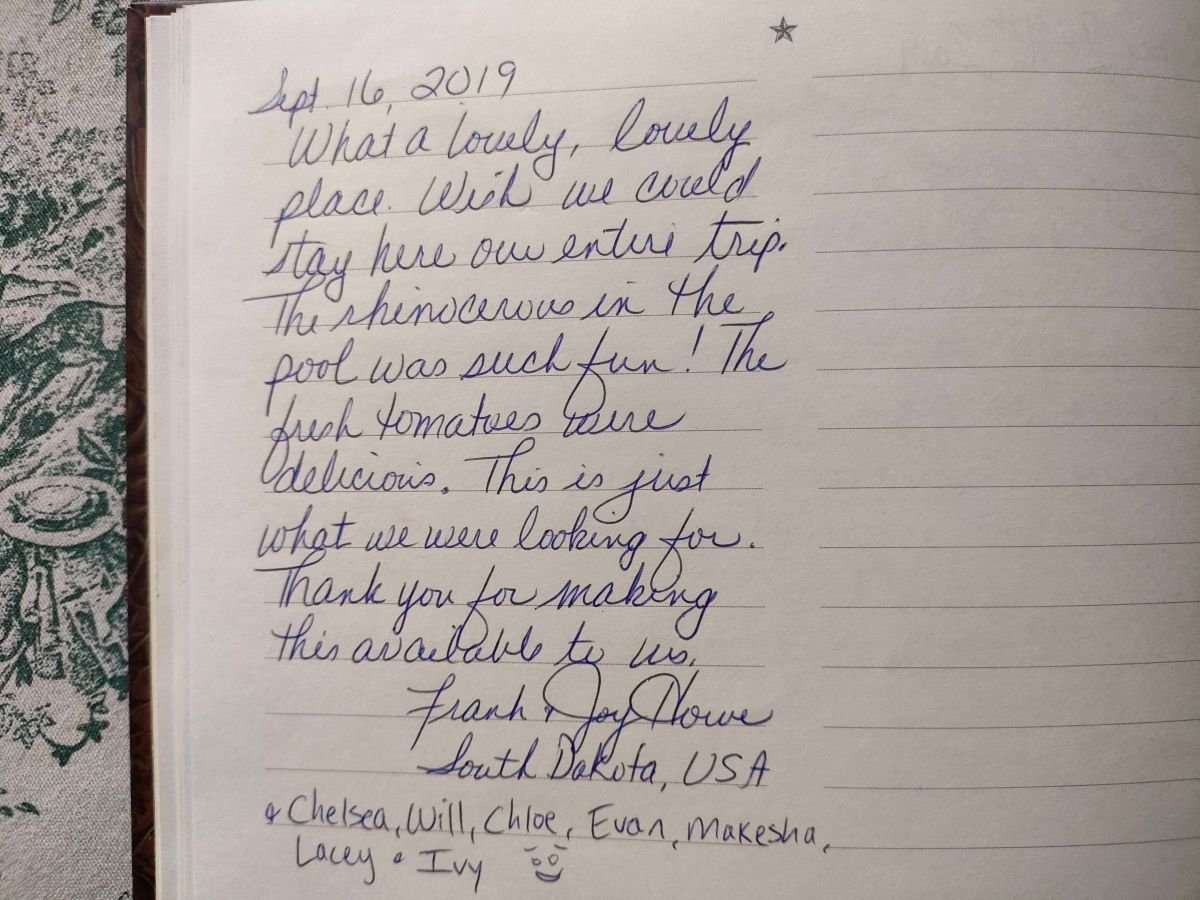 Sept. 16, 2019
What a lovely, lovely
place. Wish we could
stay here our entire trip.
The rhinocerous in the
pool was such fun! The
fresh tomatoes were
delicious. This is just
what we were looking for.
Thank you for making
this available to us.
Frank & Joy Howe
South Dakota, USA
& Chelsea, Will, Chloe, Evan, Makesha,
Lacey & Ivy